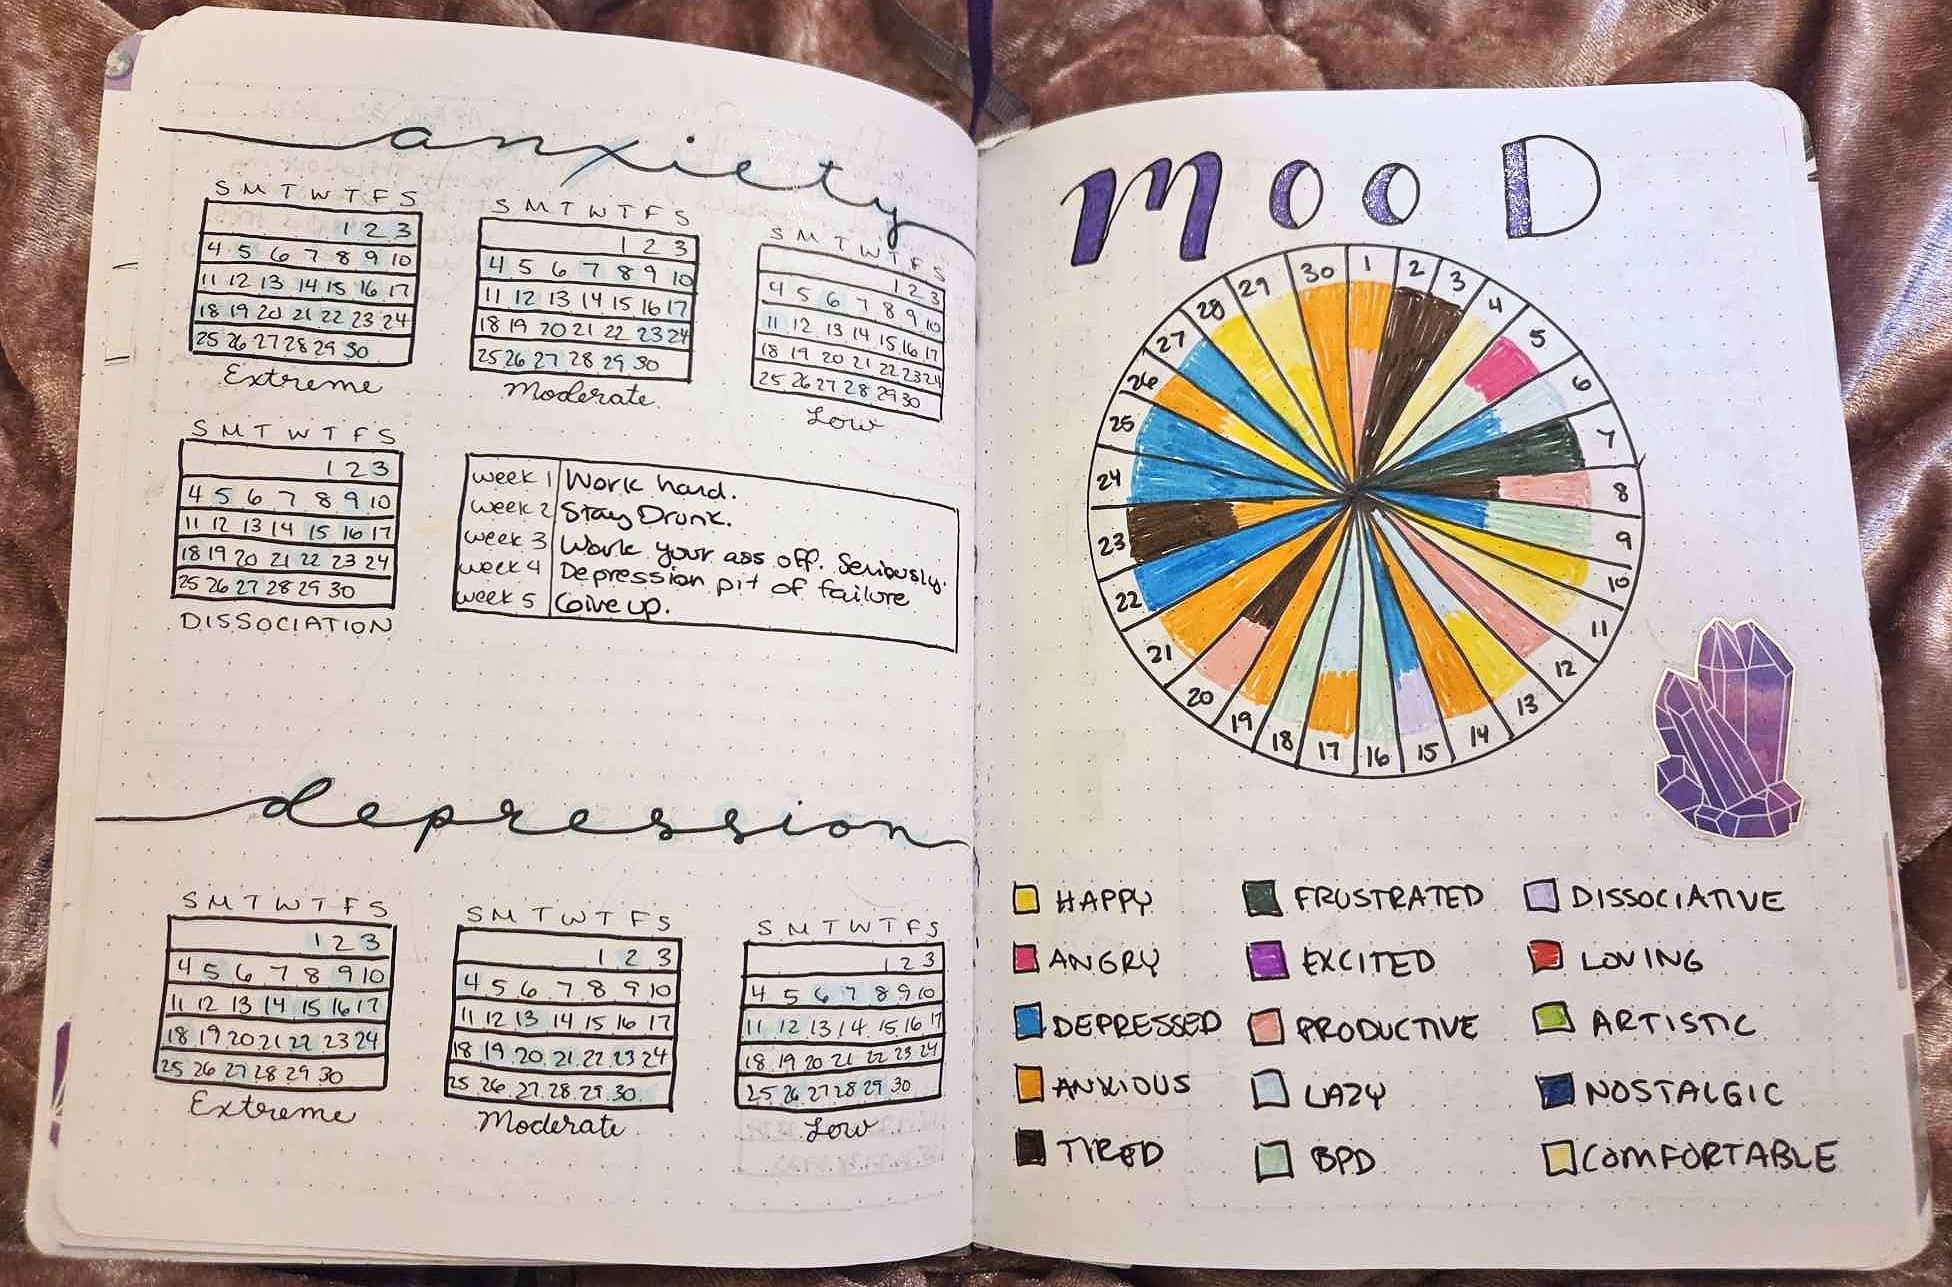 anxiety
S M T W T F S
1 2 3
4 5 6 7 8 9 10
11 12 13 14 15 16 17
18 19 20 21 22 23 24
25 26 27 28 29 30
Extreme
S M T W T F S
1 2 3
4 5 6 7 8 9 10
11 12 13 14 15 16 17
18 19 20 21 22 23 24
25 26 27 28 29 30
Moderate
S M T W T F S
1 2 3
4 5 6 7 8 9 10
11 12 13 14 15 16 17
18 19 20 21 22 23 24
25 26 27 28 29 30
Low
S M T W T F S
1 2 3
4 5 6 7 8 9 10
11 12 13 14 15 16 17
18 19 20 21 22 23 24
25 26 27 28 29 30
DISSOCIATION
week 1 Work hard.
week 2 Stay Drunk.
week 3 Work your ass off. Seriously.
week 4 Depression pit of failure
week 5 Give up.
depression
S M T W T F S
1 2 3
4 5 6 7 8 9 10
11 12 13 14 15 16 17
18 19 20 21 22 23 24
25 26 27 28 29 30
Extreme
S M T W T F S
1 2 3
4 5 6 7 8 9 10
11 12 13 14 15 16 17
18 19 20 21 22 23 24
25 26 27 28 29 30
Moderate
S M T W T F S
1 2 3
4 5 6 7 8 9 10
11 12 13 14 15 16 17
18 19 20 21 22 23 24
25 26 27 28 29 30
Low
MOOD
1
2
3
4
5
6
7
8
9
10
11
12
13
14
15
16
17
18
19
20
21
22
23
24
25
26
27
28
29
30
HAPPY
ANGRY
DEPRESSED
ANXIOUS
TIRED
FRUSTRATED
EXCITED
PRODUCTIVE
LAZY
BPD
DISSOCIATIVE
LOVING
ARTISTIC
NOSTALGIC
COMFORTABLE